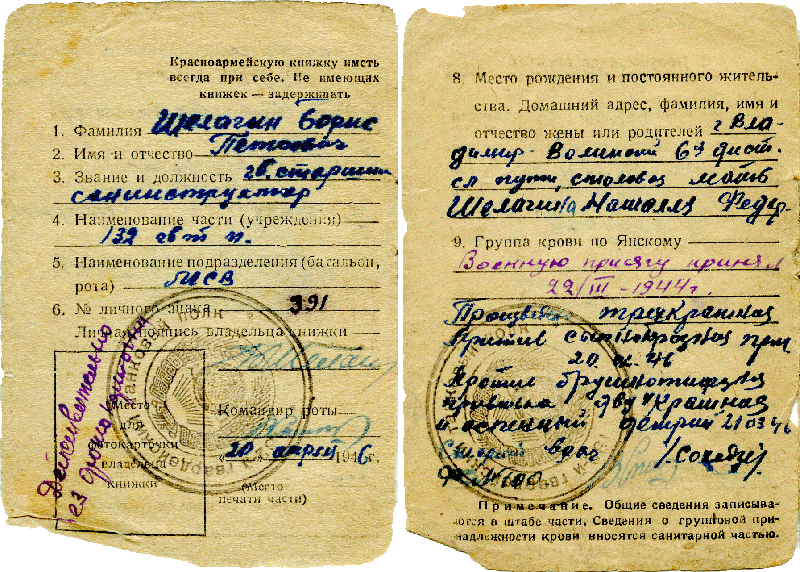 Красноармейскую книжку иметь
всегда при себе. Не имеющих
книжек — задерживать
1. Фамилия Шелагин Борис
2. Имя и отчество Петрович
3. Звание и должность гв. старшин
санинструктор
4. Наименование части (учреждения)
132 гв т п.
5. Наименование подразделения (батальон,
рота) МСВ
6. № личного знака 391
Личная подпись владельца книжки
Действительно
без фотокарточки
Место
для
фотокарточки
владельца
книжки
Командир роты
„20“ апрель 1946г.
(Место
печати части)
8. Место рождения и постоянного житель-
ства. Домашний адрес, фамилия, имя и
отчество жены или родителей г Вла-
димир-Волинский 67 дист.
сл пути, столовая мать
Шелагина Наталля Федор-
9. Группа крови по Янскому
Военную присягу принял
22/III-1944г.
трехкратная
Против
46
Против брушнотифозная
прививка двухкратная
и оспенный детрит 21 03 46
врач
Примечание. Общие сведения записыва-
ются в штабе части. Сведения о групповой при-
надлежности крови вносятся санитарной частью.